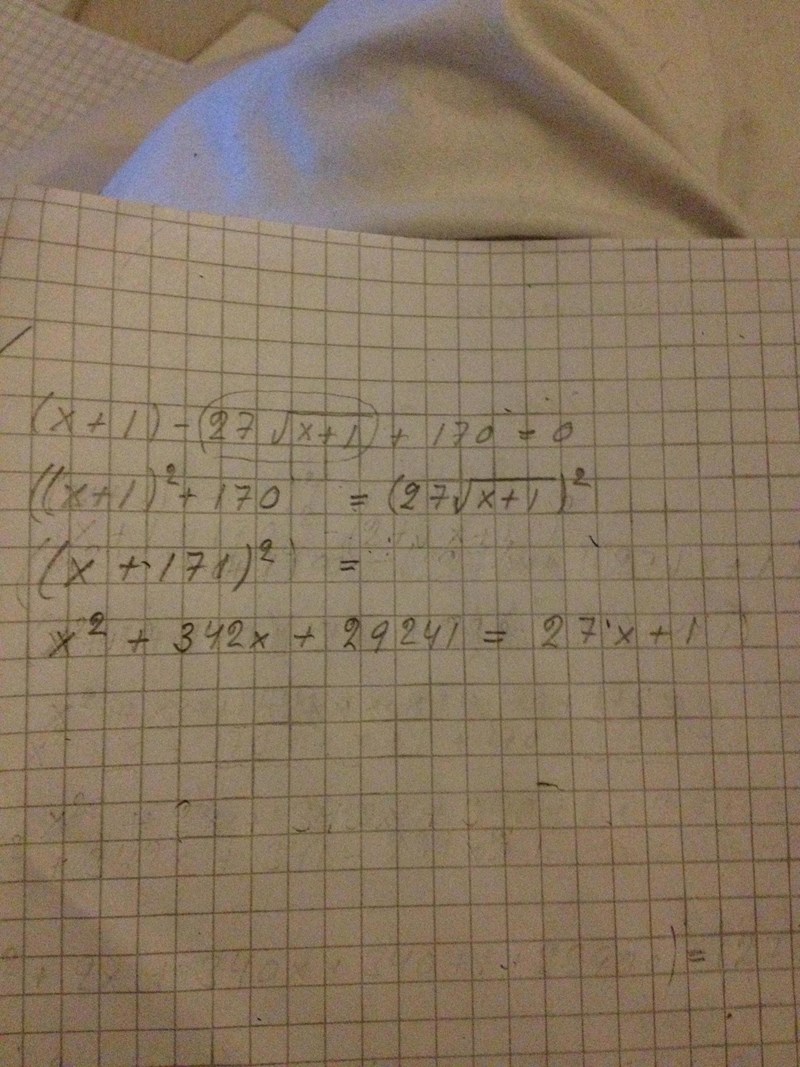 (x+1) - (27 √x+1) + 170 = 0
((x+1)² + 170 = (27√x+1)²
(x + 171)² =
x² + 342x + 29241 = 27·x + 1
) =